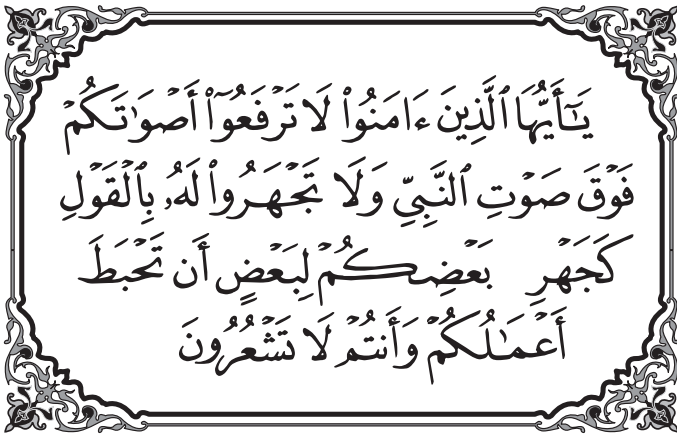 يَـٰٓأَيُّهَا ٱلَّذِينَ ءَامَنُوا۟ لَا تَرْفَعُوٓا۟ أَصْوَٰتَكُمْ
فَوْقَ صَوْتِ ٱلنَّبِىِّ وَلَا تَجْهَرُوا۟ لَهُۥ بِٱلْقَوْلِ
كَجَهْرِ بَعْضِكُمْ لِبَعْضٍ أَن تَحْبَطَ
أَعْمَـٰلُكُمْ وَأَنتُمْ لَا تَشْعُرُونَ